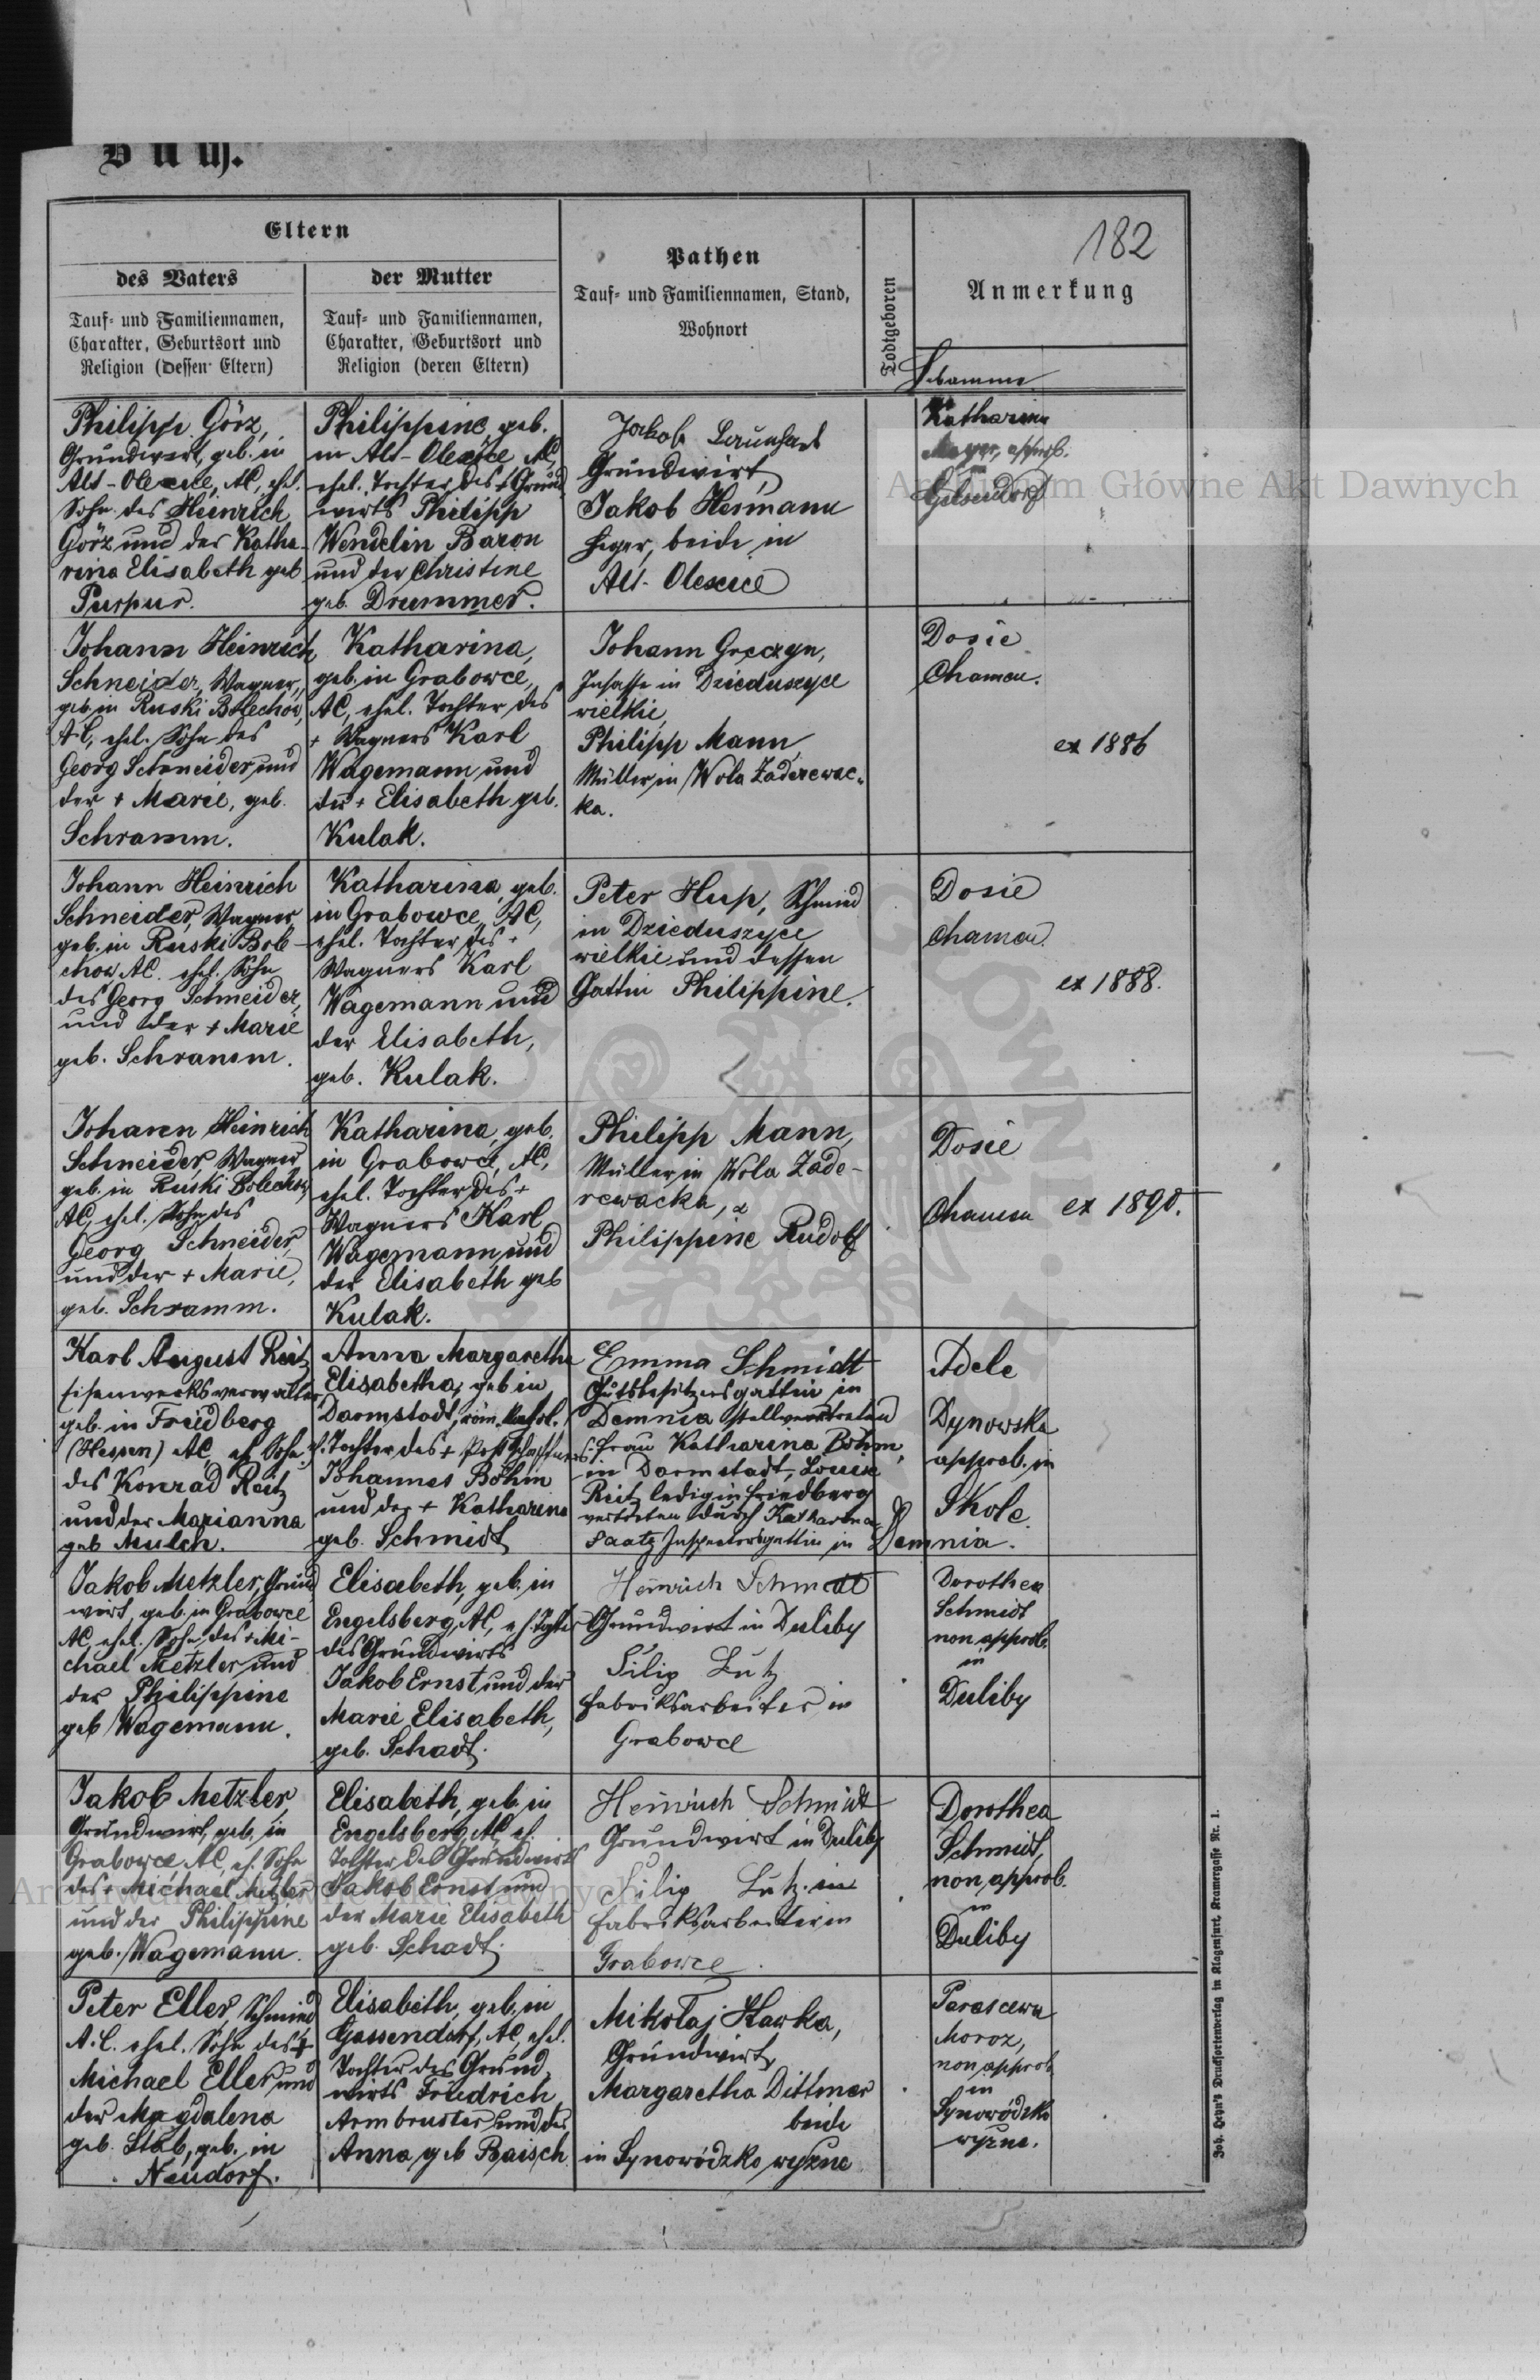 Buch.
182
Eltern
des Vaters
Tauf- und Familiennamen,
Charakter, Geburtsort und
Religion (dessen Eltern)
der Mutter
Tauf- und Familiennamen,
Charakter, Geburtsort und
Religion (deren Eltern)
Pathen
Tauf- und Familiennamen, Stand,
Wohnort
Todtgeboren
Anmerkung
Philipp Görz,
Grundwirt, geb. in
Alt-Olexice, AC, ehel.
Sohn des Heinrich
Görz und der Katha-
rina Elisabeth geb.
Purpur.
Philippine geb.
in Alt-Olexice AC,
ehel. Tochter des + Grund
wirts Philipp
Wendelin Baron
und der Christine
geb. Drummer.
Jakob
Grundwirt,
Jakob Hermann
Heger, beide in
Alt-Olexice
Katharina
Mayer, approb.
in
Gelsendorf
Johann Heinrich
Schneider, Wagner,
geb. in Ruski Bolechow,
AC, ehel. Sohn des
Georg Schneider und
der + Marie, geb.
Schramm.
Katharina,
geb. in Grabowce,
AC, ehel. Tochter des
+ Wagners Karl
Wagemann und
der + Elisabeth geb.
Kulak.
Johann
Insasse in Dzieduszyce
wielkie,
Philipp Mann,
Müller in Wola Zaderewac-
ka.
Dosie
Chamen.
ex 1886
Johann Heinrich
Schneider, Wagner
geb. in Ruski Bole-
chow AC. ehel. Sohn
des Georg Schneider,
und der + Marie
geb. Schramm.
Katharina, geb.
in Grabowce, AC,
ehel. Tochter des +
Wagners Karl
Wagemann und
der Elisabeth,
geb. Kulak.
Peter Hup, Schmied
in Dzieduszyce
wielkie und dessen
Gattin Philippine.
Dosie
Chamen.
ex 1888.
Johann Heinrich
Schneider, Wagner
geb. in Ruski Bolechow,
AC, ehel. Sohn des
Georg Schneider,
und der + Marie,
geb. Schramm.
Katharina, geb.
in Grabowce, AC,
ehel. Tochter des +
Wagners Karl
Wagemann und
der Elisabeth geb
Kulak.
Philipp Mann,
Müller in Wola Zade-
rewacka,
Philippine Rudolf
Dosie
Chamen ex 1890.
Karl August Reitz
Eisenwerksverwalter,
geb. in Friedberg
(Hessen) AC, eh. Sohn
des Konrad Reitz
und der Marianna
geb Mulch.
Anna Margaretha
Elisabetha, geb in
Darmstadt, röm. kathol.
Tochter des + Postschaffners
Johannes Böhm
und der + Katharina
geb. Schmidt
Emma Schmidt
Gutsbesitzersgattin in
Demnia stellvertretend
Frau Katharina Böhm,
in Darmstadt, Louise
Reitz ledig in Friedberg
vertreten durch Katharina
Saatz Inspectorsgattin in Demnia.
Adele
Dynowska
approb. in
Skole.
Jakob Metzler, Grund
wirt, geb. in Grabowce
AC, ehel. Sohn des + Mi-
chael Metzler und
der Philippine
geb Wagemann.
Elisabeth, geb. in
Engelsberg, AC, eh. Tochter
des Grundwirts
Jakob Ernst und der
Marie Elisabeth,
geb. Schadt.
Heinrich Schmidt
Grundwirt in Duliby
Filip Lutz
Fabriksarbeiter in
Grabowce
Dorothea
Schmidt
non approb.
in
Duliby
Jakob Metzler,
Grundwirt, geb. in
Grabowce, AC, eh. Sohn
des + Michael Metzler
und der Philippine
geb. Wagemann.
Elisabeth, geb. in
Engelsberg, AC, eh.
Tochter des Grundwirts
Jakob Ernst und
der Marie Elisabeth
geb. Schadt.
Heinrich Schmidt
Grundwirt in Duliby
Filip Lutz in
Fabriksarbeiter in
Grabowce.
Dorothea
Schmidt,
non approb.
in
Duliby
Peter Eller, Schmied
A.C. ehel. Sohn des +
Michael Eller und
der Magdalena
geb. Stab, geb. in
Neudorf.
Elisabeth, geb. in
Gassendorf, AC, ehel.
Tochter des Grund-
wirts Friedrich
Armbruster und der
Anna, geb Baisch.
Mikołaj Hawka,
Grundwirt,
Margaretha Dittmer
beide
in Synowódzko wyżne
Parascewa
Moroz,
non approb.
in
Synowódzko
wyżne.
Joh. Heyn's Drucksortenverlag in Klagenfurt, Kramergasse Nr. 1.
Archiwum Główne Akt Dawnych